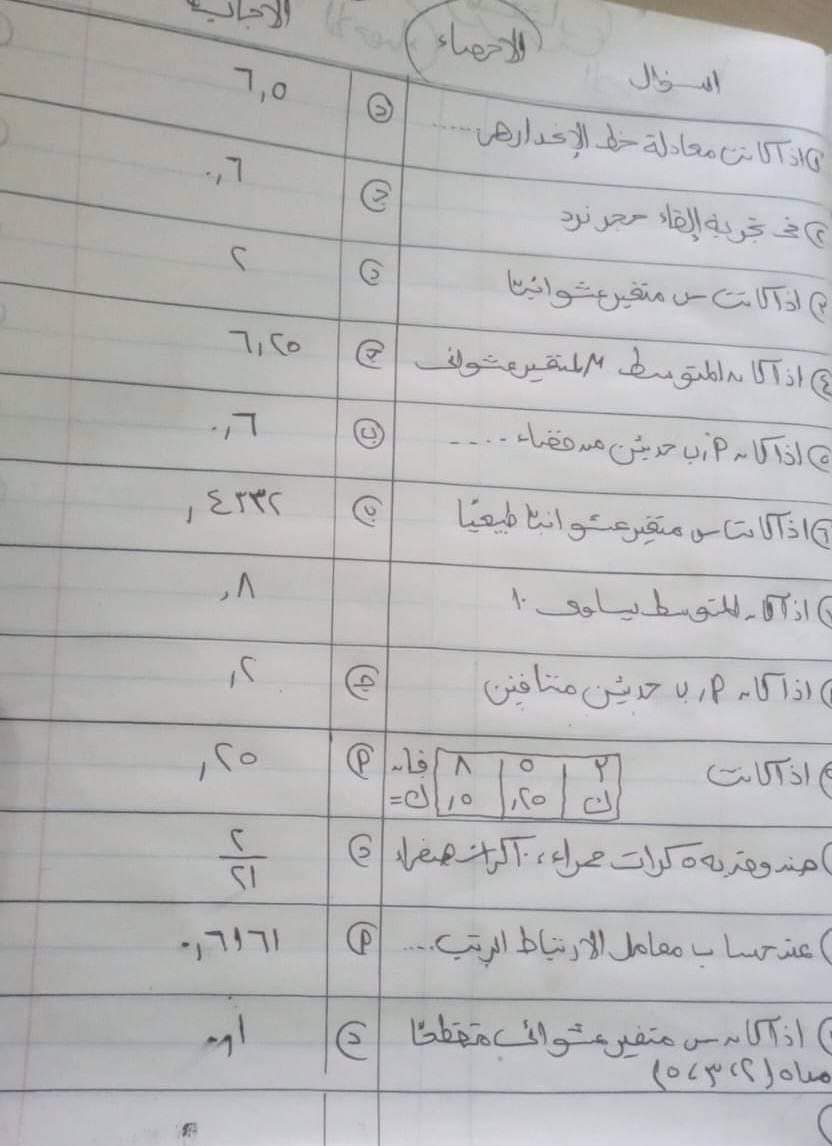 السؤال الاحصاء الاجابة
١) اذا كانت معادلة خط الإنحدار هى ..... (د) ٦,٥
٢) فى تجربة إلقاء حجر نرد (ج) ٠,٦
٣) اذا كانت س متغير عشوائيا (د) ٢
٤) اذا كان المتوسط M لمتغير عشوائى (ج) ٦,٢٥
٥) اذا كان P، ب حدثين من فضاء .... (ب) ٠,٦
٦) اذا كانت س متغير عشوائيا طبيعيًا (ب) ,٤٣٣٢
اذا كان المتوسط يساوى ١٠ ,٨
اذا كان P، ب حدثين متنافين (ج) ,٢
اذا كانت (P) ,٢٥
٢ ٥ ٨ فإن
ك ,٢٥ ,٥ ك=
صندوق به ٥ كرات حمراء، ١٠ كرات صفراء (د) ٢/٢١
عند حساب معامل الارتباط الرتب ... (P) ٠,٦١٦١
اذا كان س متغير عشوائى متقطعًا (د)
مداه (٢،٣،٥)